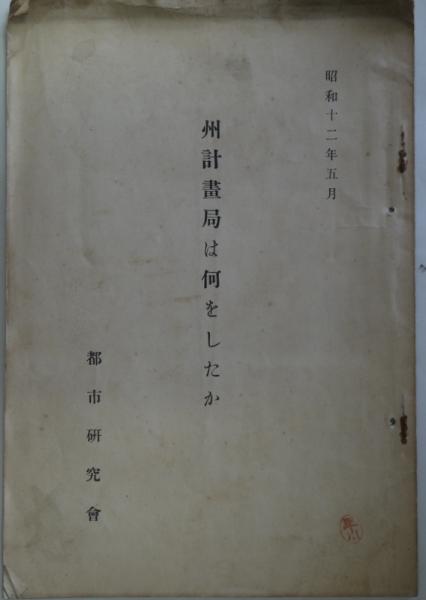 昭和十二年五月
州計畫局は何をしたか
都市研究會